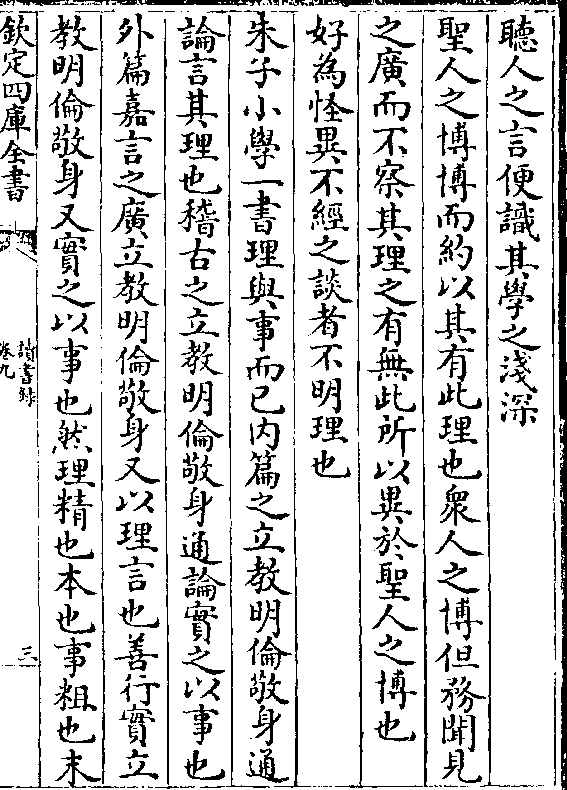 聽人之言便識其學之淺深
聖人之博博而約以其有此理也衆人之博但務聞見
之廣而不察其理之有無此所以異於聖人之博也
好為怪異不經之談者不明理也
朱子小學一書理與事而已内篇之立教明倫敬身通
論言其理也稽古之立教明倫敬身通論實之以事也
外篇嘉言之廣立教明倫敬身又以理言也善行實立
教明倫敬身又實之以事也然理精也本也事粗也末
欽定四庫全書
讀書録
卷九
三